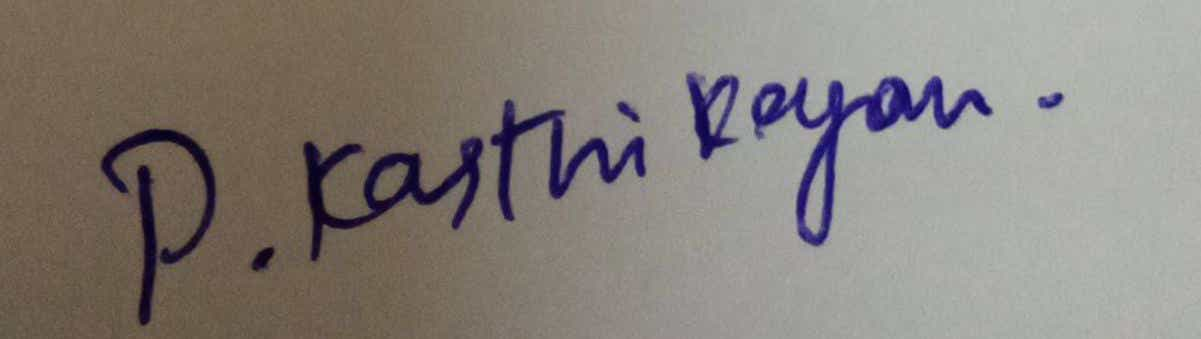 P. Karthikeyan.